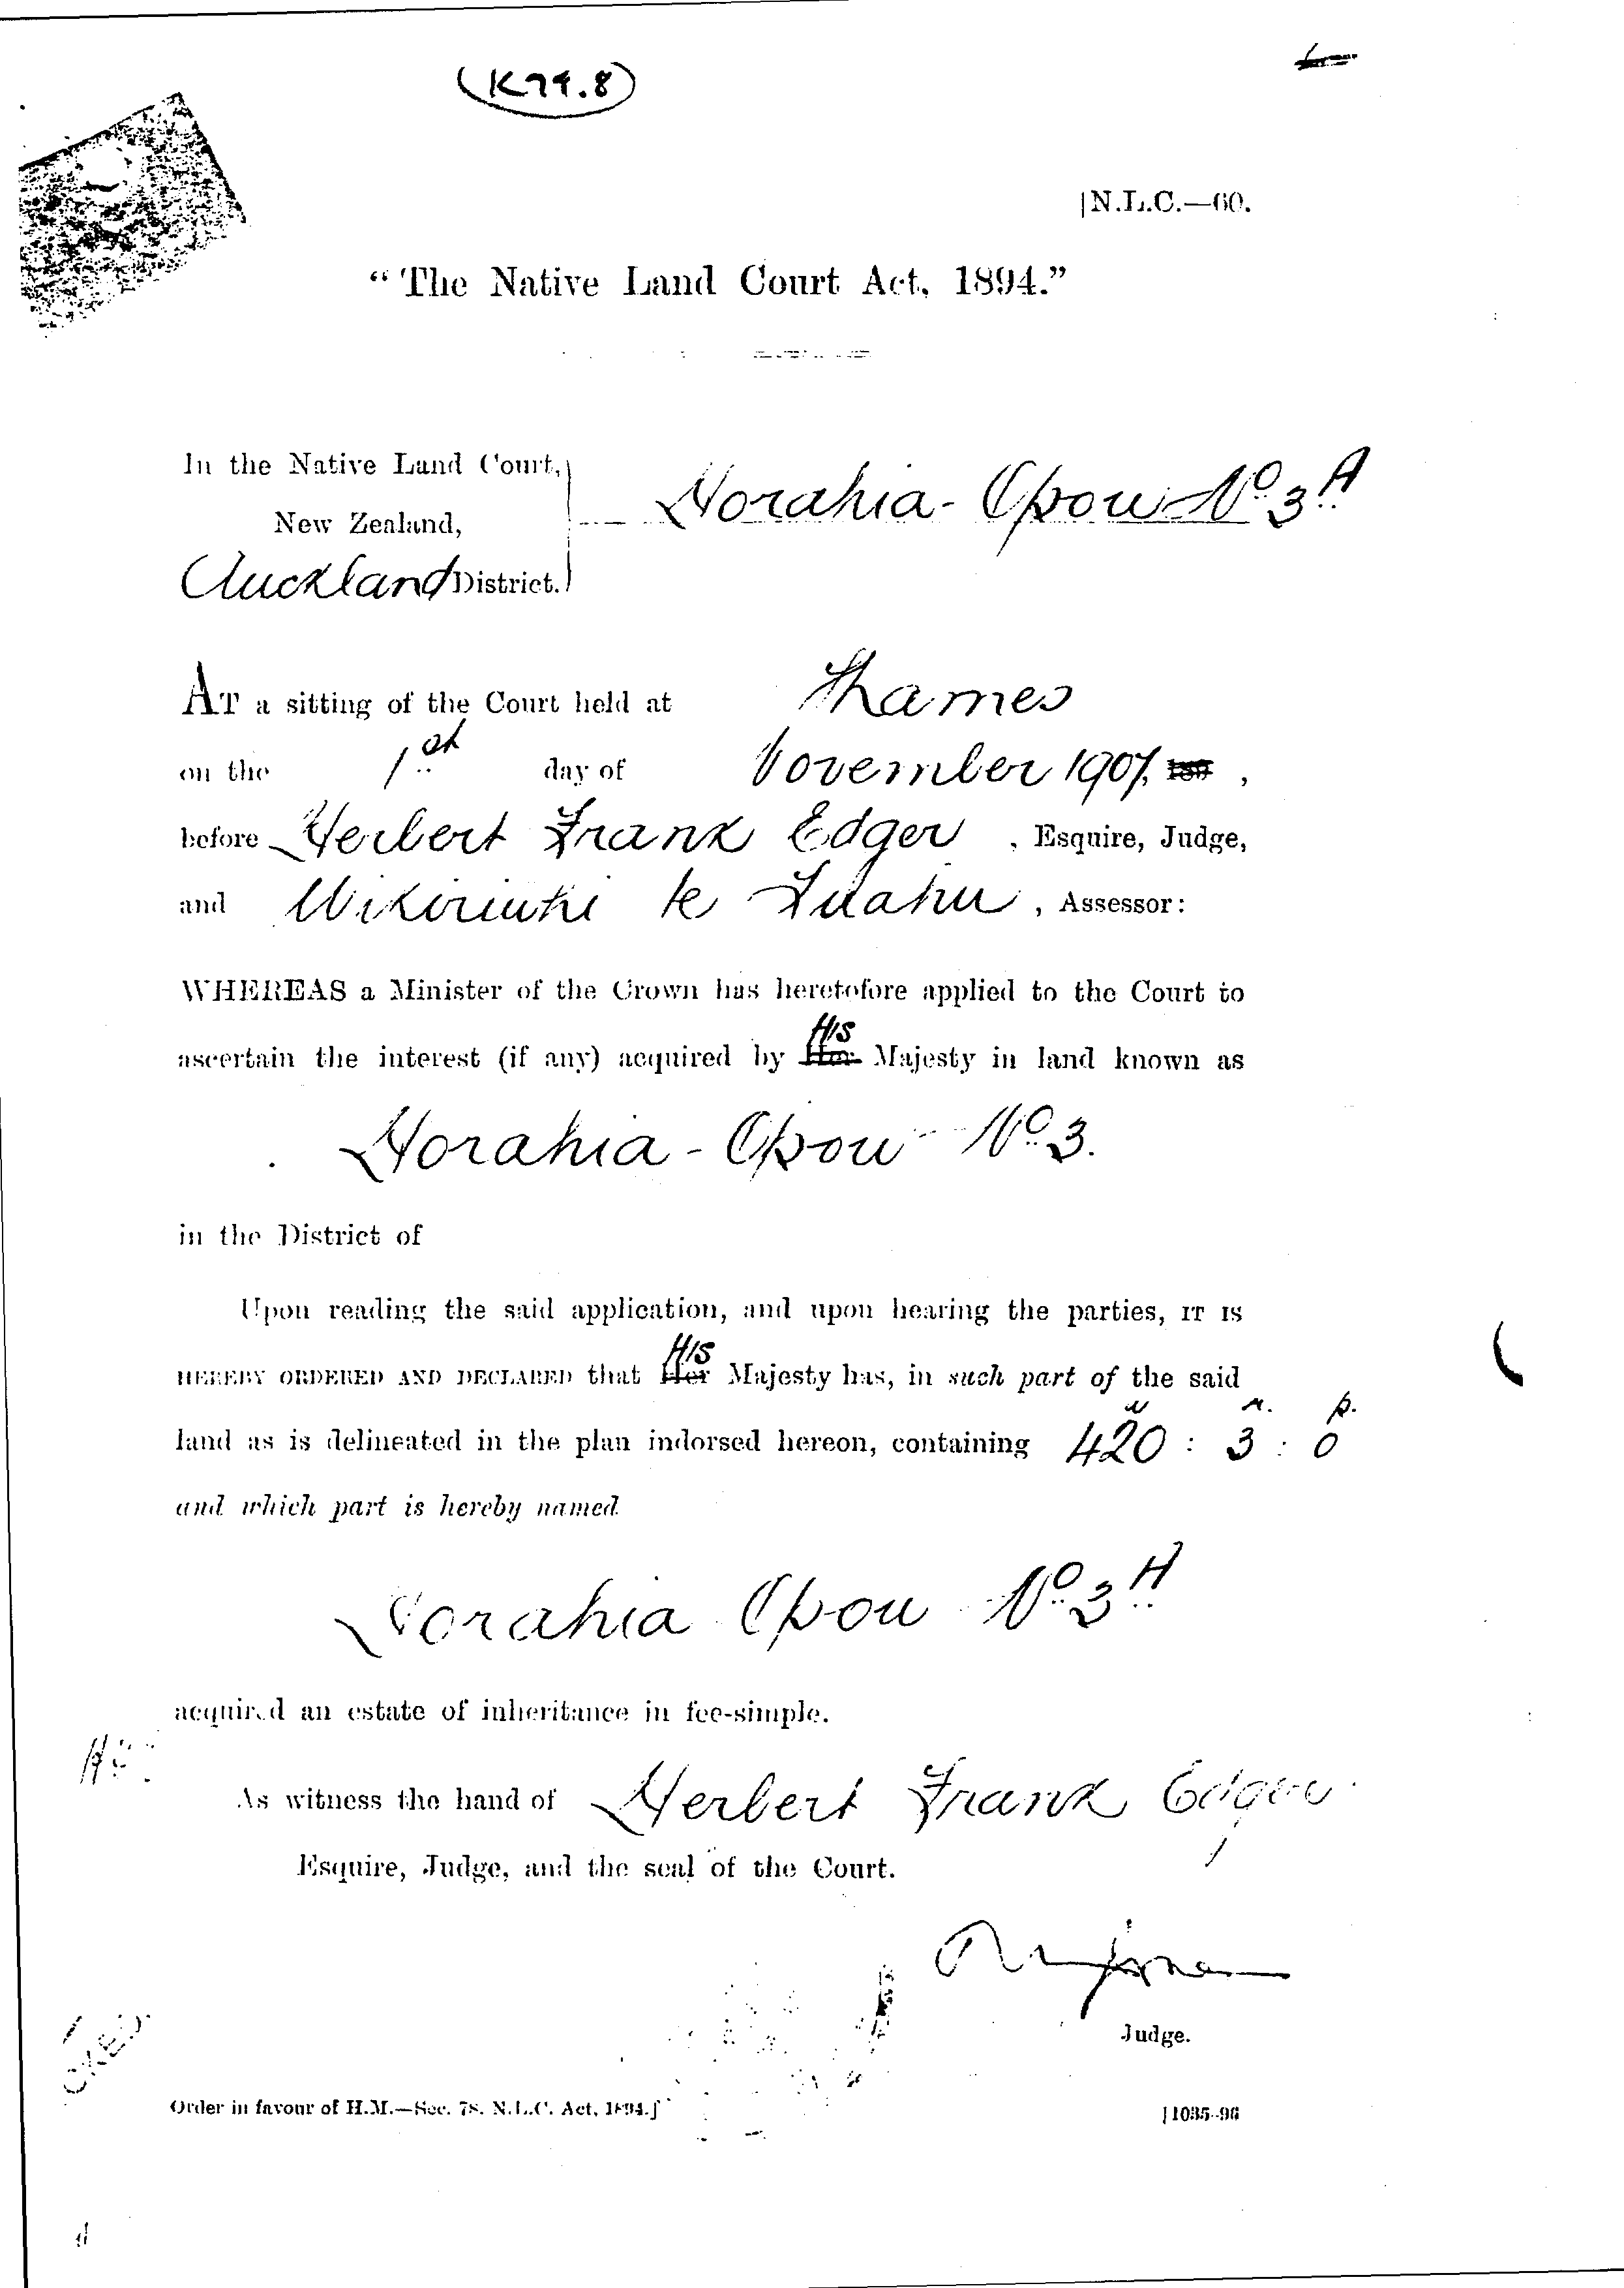 (K74.8)
[N.L.C.—60.
“The Native Land Court Act, 1894.”
In the Native Land Court,
New Zealand,
Auckland District.
Horahia - Opou No. 3A
AT a sitting of the Court held at Thames
on the 1st day of November 1907,
before Herbert Frank Edger, Esquire, Judge,
and te Tuahu, Assessor:
WHEREAS a Minister of the Crown has heretofore applied to the Court to
ascertain the interest (if any) acquired by His Her Majesty in land known as
Horahia - Opou No. 3.
in the District of
Upon reading the said application, and upon hearing the parties, IT IS
HEREBY ORDERED AND DECLARED that His Her Majesty has, in such part of the said
land as is delineated in the plan indorsed hereon, containing 420 : 3 : 0
and which part is hereby named
Horahia Opou No. 3A
acquired an estate of inheritance in fee-simple.
As witness the hand of Herbert Frank Edger
Esquire, Judge, and the seal of the Court.
Judge.
Order in favour of H.M.—Sec. 78, N.L.C. Act, 1894.]
[1035-96